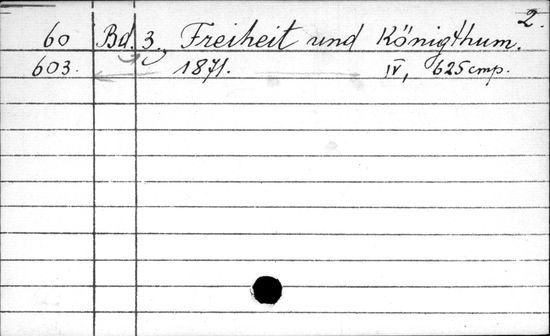 2.
60 Bd. 3, Freiheit und Königthum.
603. 1871. IV, 625 стр.